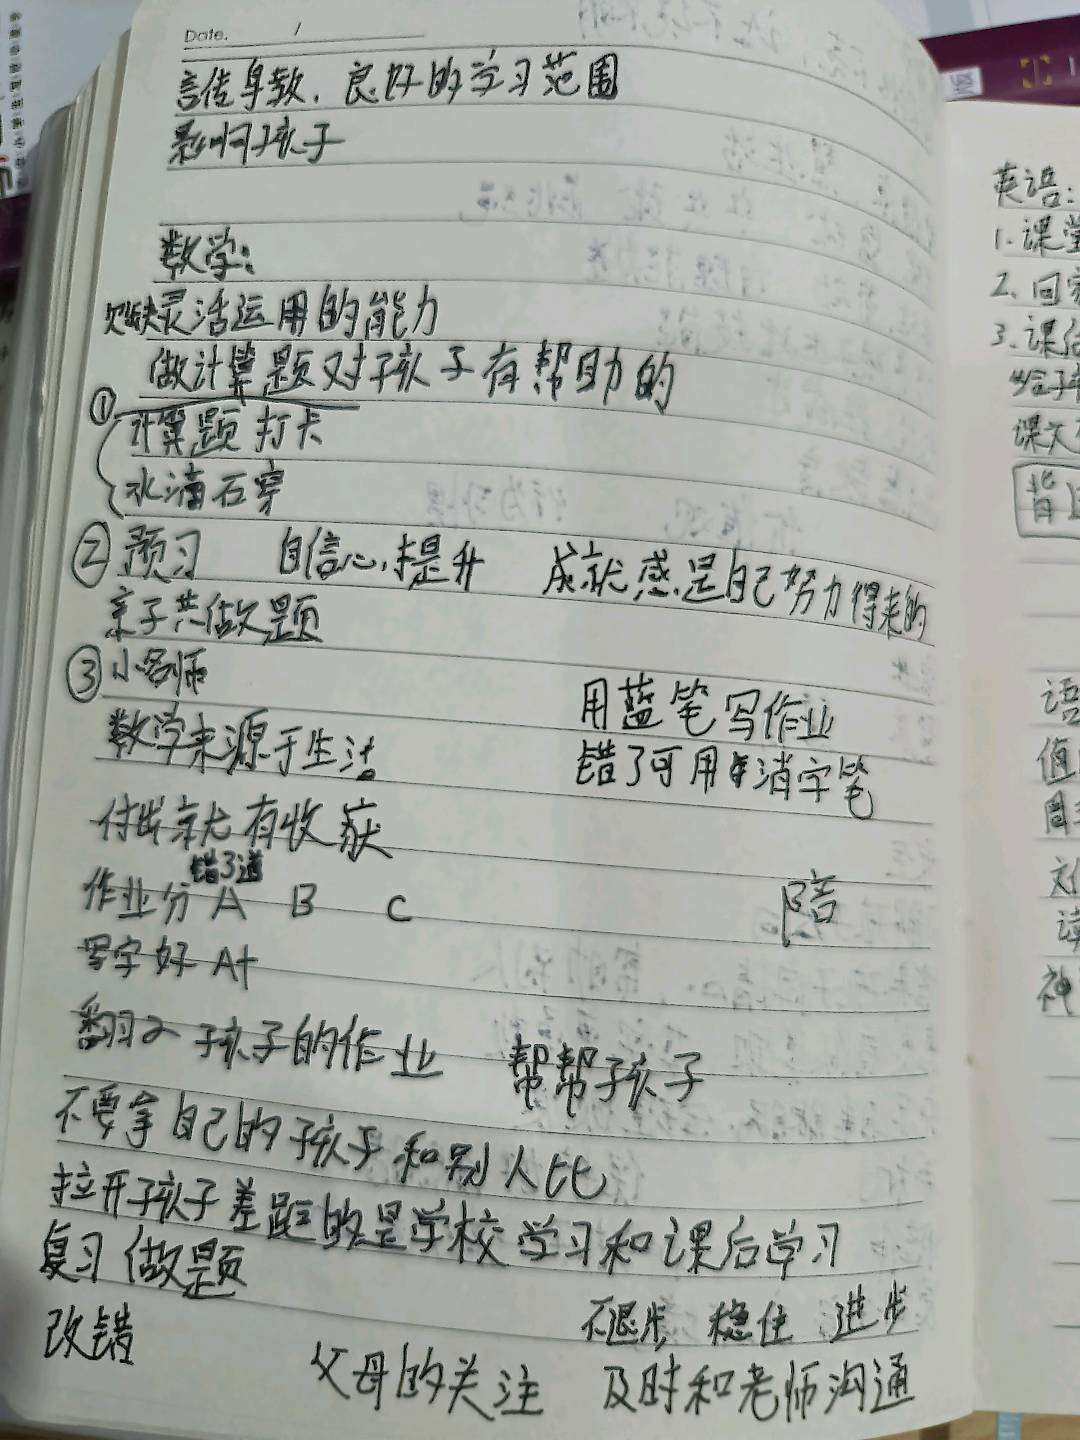 Date. /
言传身教. 良好的学习范围
影响孩子
数学:
欠缺灵活运用的能力
做计算题对孩子有帮助的
① 计算题打卡
水滴石穿
② 预习 自信心提升 成就感是自己努力得来的
亲子共做题
③ 小名师
用蓝笔写作业
数学来源于生活
错了可用消字笔
付出就有收获
错了道
作业分 A B C 陪
写字好 A+
翻々孩子的作业 帮帮孩子
不要拿自己的孩子和别人比
拉开孩子差距的是学校学习和课后学习
复习 做题
不退步 稳住 进步
改错
父母的关注 及时和老师沟通
英语:
1. 课堂
2. 回家
3. 课后
课文
背
语
值
周
文
读
神